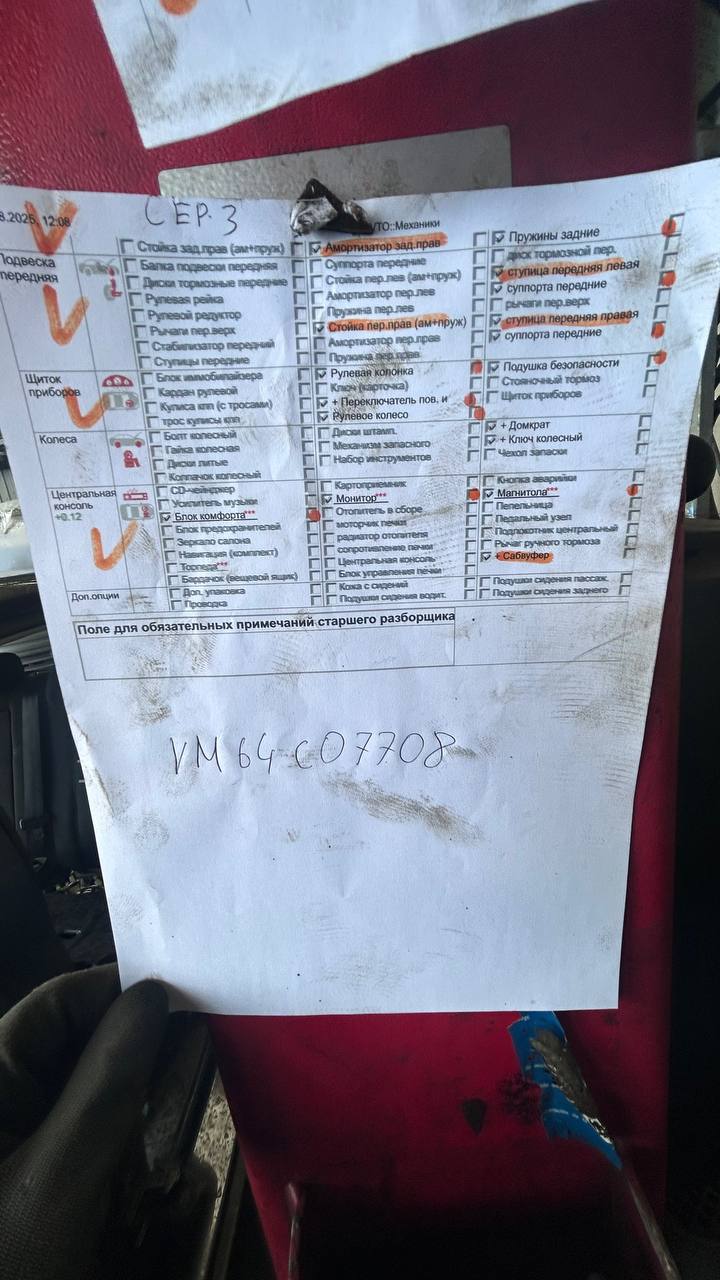 8.2025, 12:08
СЕР. 3
ТО::Механики
Стойка зад.прав (ам+пруж)
Амортизатор зад.прав
Пружины задние
Подвеска передняя
Балка подвески передняя
Суппорта передние
диск тормозной пер.
Диски тормозные передние
Стойка пер.лев (ам+пруж)
ступица передняя левая
Рулевая рейка
Амортизатор пер.лев
суппорта передние
Рулевой редуктор
Пружина пер.лев
рычаги пер.верх
Рычаги пер.верх
Стойка пер.прав (ам+пруж)
ступица передняя правая
Стабилизатор передний
Амортизатор пер.прав
суппорта передние
Ступицы передние
Пружина пер.прав
Щиток приборов
Блок иммобилайзера
Рулевая колонка
Подушка безопасности
Кардан рулевой
Ключ (карточка)
Стояночный тормоз
Кулиса кпп (с тросами)
+ Переключатель пов. и
Щиток приборов
трос кулисы кпп
Рулевое колесо
Колеса
Болт колесный
Диски штамп.
+ Домкрат
Гайка колесная
Механизм запасного
+ Ключ колесный
Диски литые
Набор инструментов
Чехол запаски
Колпачок колесный
Центральная консоль
+0.12
CD-чейнджер
Картоприемник
Кнопка аварийки
Усилитель музыки
Монитор***
Магнитола***
Блок комфорта***
Отопитель в сборе
Пепельница
Блок предохранителей
моторчик печки
Педальный узел
Зеркало салона
радиатор отопителя
Подлокотник центральный
Навигация (комплект)
сопротивление печки
Рычаг ручного тормоза
Торпеда***
Центральная консоль
+ Сабвуфер
Бардачок (вещевой ящик)
Блок управления печки
Доп.опции
Доп. упаковка
Кожа с сидений
Подушки сидения пассаж.
Проводка
Подушки сидения водит.
Подушки сидения заднего
Поле для обязательных примечаний старшего разборщика
VM64C07708